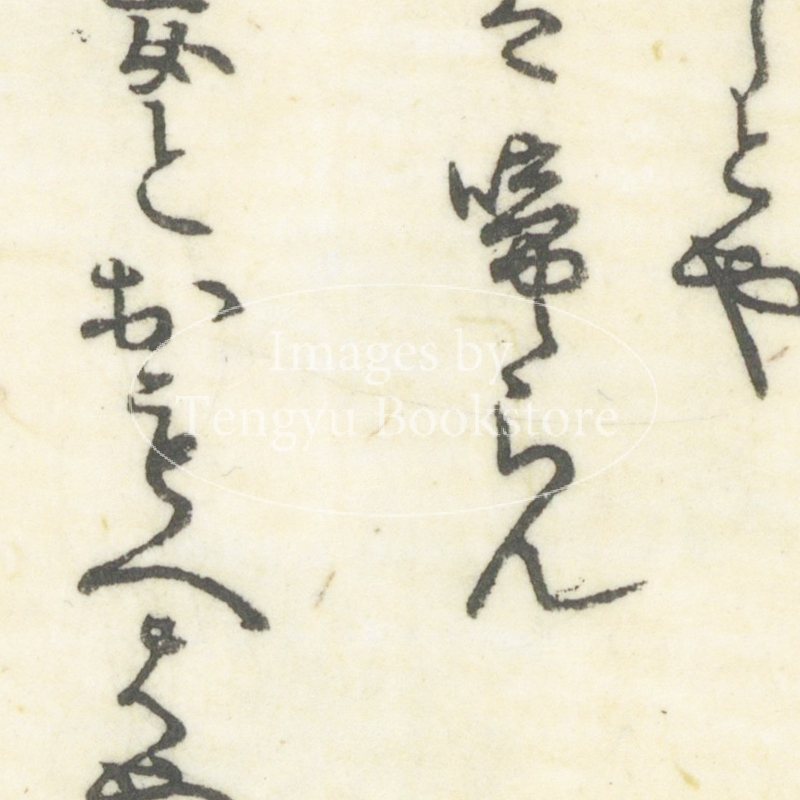 しとや
啼らん
とおもへはや
Images by
Tengyu Bookstore